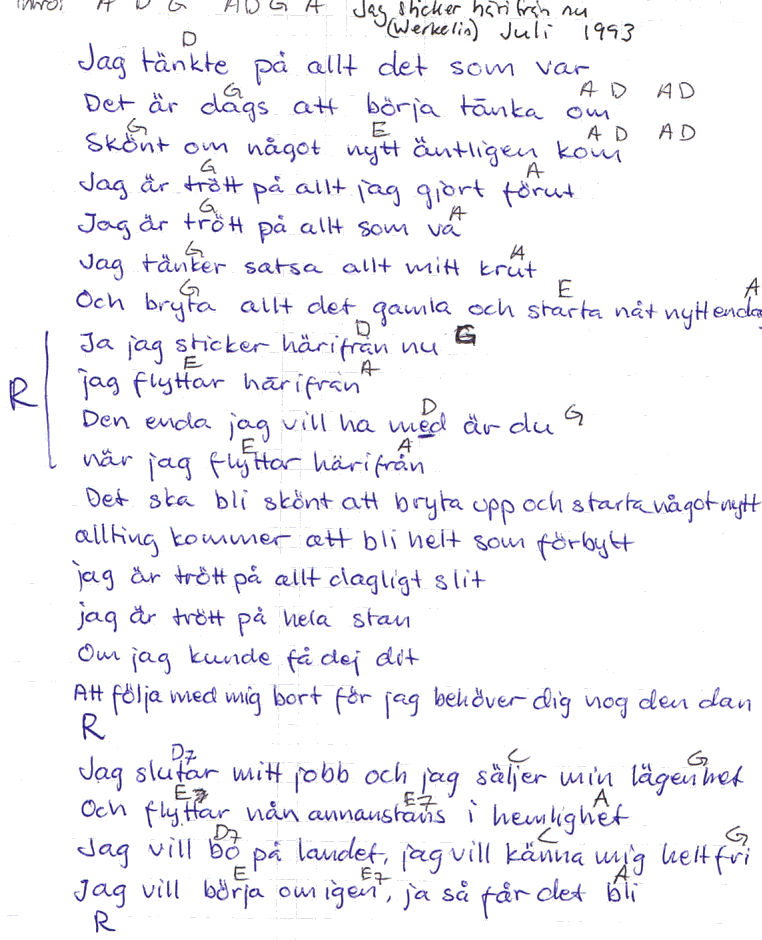 Intro: A D G A D G A Jag sticker härifrån nu
(Werkelin) Juli 1993
D
Jag tänkte på allt det som var
G A D A D
Det är dags att börja tänka om
G E A D A D
Skönt om något nytt äntligen kom
G A
Jag är trött på allt jag gjort förut
G A
Jag är trött på allt som va
G A
Jag tänker satsa allt mitt krut
G E A
Och bryta allt det gamla och starta nåt nytt endag
D G
Ja jag sticker härifrån nu
E A
R jag flyttar härifrån
D G
Den enda jag vill ha med är du
E A
när jag flyttar härifrån
Det ska bli skönt att bryta upp och starta något nytt
allting kommer att bli helt som förbytt
jag är trött på allt dagligt slit
jag är trött på hela stan
Om jag kunde få dej dit
Att följa med mig bort för jag behöver dig nog den dan
R
D7 C G
Jag slutar mitt jobb och jag säljer min lägenhet
E7 E7 A
Och flyttar nån annanstans i hemlighet
D7 C G
Jag vill bo på landet, jag vill känna mig helt fri
E E7 A
Jag vill börja om igen, ja så får det bli
R